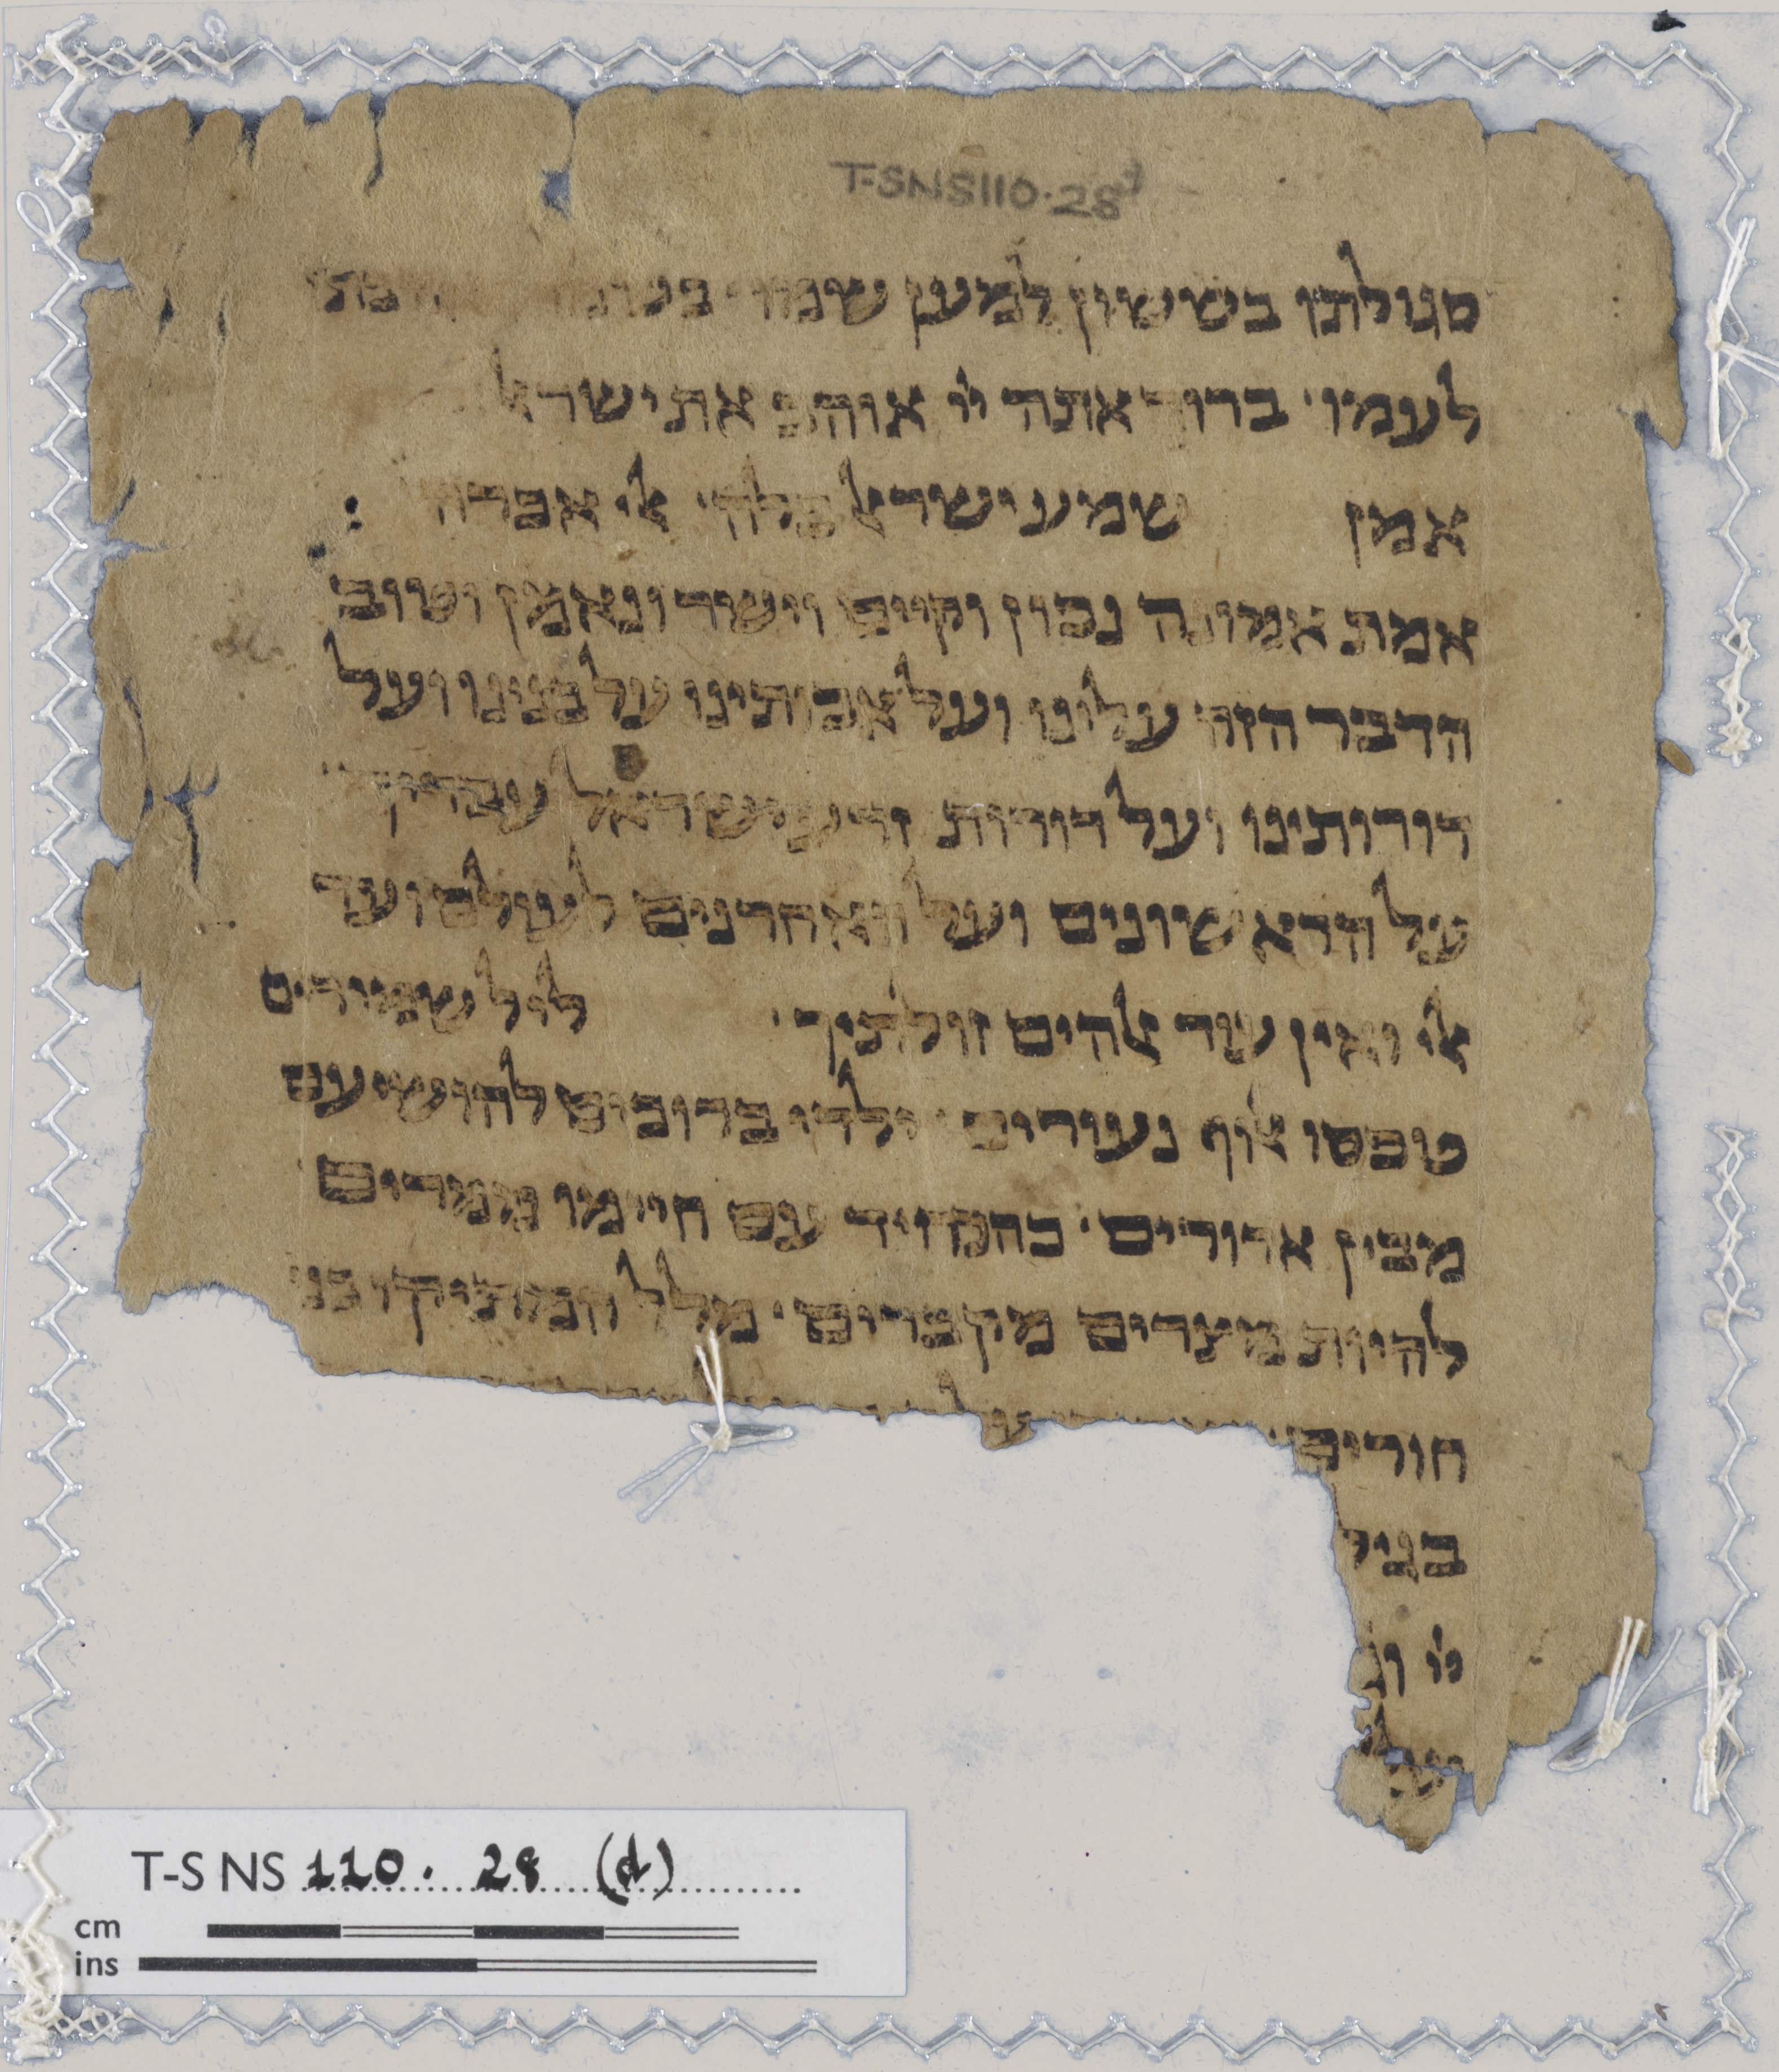 T-S NS 110.28 d
סגולתו בששון למען שמו
לעמו ברוך אתה ייי אוהב את ישראל
אמן שמע ישראל כלה אני אברהם
אמת אמונה נכון וקיים וישר ונאמן וטוב
הדבר הזה עלינו ועל אבותינו על בנינו ועל
דורותינו ועל דורות זרע ישראל עבדיך
על הראשונים ועל האחרנים לעולם ועד
ואין עוד אלהים זולתיך ליל שמורים
טבסו אלוף נעורים ילדו ברוכים להושעם
מבין ארורים כהמדיד עם חיימו ממרים
להיות מצרים מקברים מלל המתיקו בני
חורים
בגיל
ייי
על
T-S NS 110. 28 (d)
cm
ins